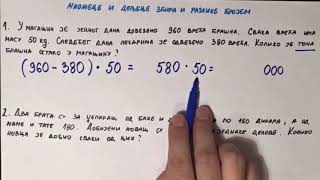 МНОЖЕЊЕ И ДЕЉЕЊЕ ЗБИРА И РАЗЛИКЕ БРОЈЕМ
1. У МАГАЦИН ЈЕ ЈЕДНОГ ДАНА ДОВЕЗЕНО 960 ВРЕЋА БРАШНА. СВАКА ВРЕЋА ИМА
МАСУ 50 КГ. СЛЕДЕЋЕГ ДАНА ПЕКАРИМА ЈЕ ОДВЕЗЕНО 380 ВРЕЋА. КОЛИКО ЈЕ ТОНА
БРАШНА ОСТАЛО У МАГАЦИНУ?
(960-380)·50 = 580·50= 000
2. ДВА БРАТА СУ ЗА ЏЕПАРАЦ ОД БАКЕ И ПО 160 ДИНАРА, А ОД
МАМЕ И ТАТЕ 180. ДОБИЈЕНИ НОВАЦ СУ ЈЕДНАКЕ ДЕЛОВЕ. КОЛИКО
НОВЦА ЈЕ ДОБИО СВАКИ ОД ЊИХ?